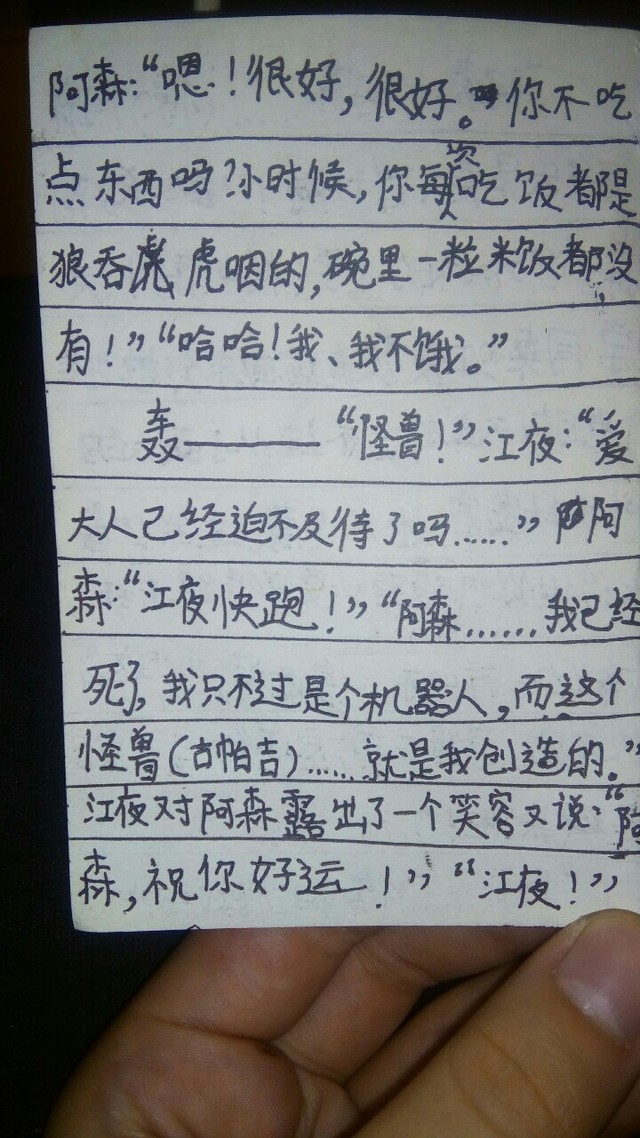 阿森:“嗯!很好,很好。你不吃
点东西吗?小时候,你每次吃饭都是
狼吞虎咽的,碗里一粒米饭都没
有!”“哈哈!我、我不饿。”
轰———“怪兽!”江夜:“爱
大人已经迫不及待了吗……”阿
森:“江夜快跑!”“阿森……我已经
死了,我只不过是个机器人,而这个
怪兽(古帕吉)……就是我创造的。”
江夜对阿森露出了一个笑容又说:“阿
森,祝你好运!”“江夜!”